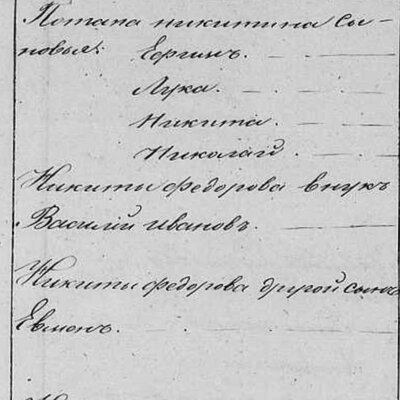 Потапа никитина сы-
новья: Ефимъ.
Лука.
Никита.
Николай.
Никиты федорова внукъ
Василий иванов.
Никиты федорова другой сынъ